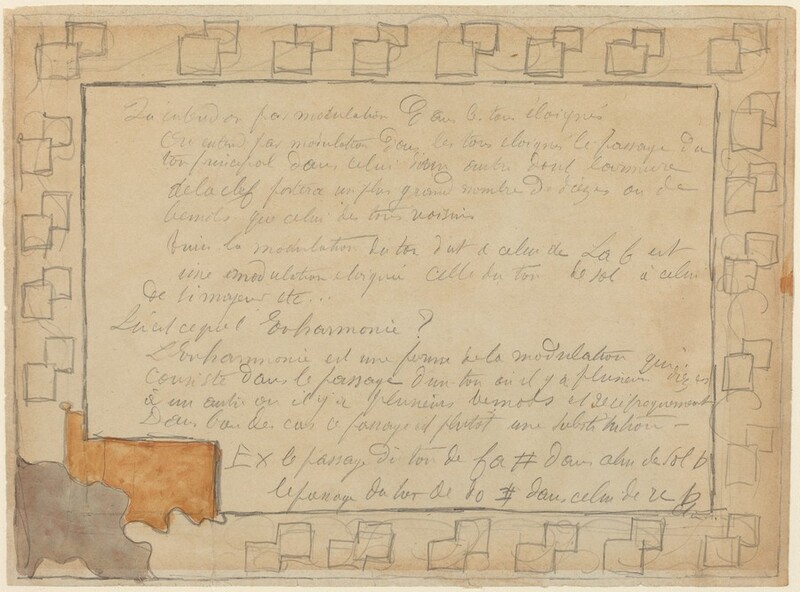 Qu'entend on par modulation Dans les tons éloignés
On entend par modulation Dans les tons éloignés le passage du
ton principal dans celui d'un autre dont l'armure
de la clef portera un plus grand nombre de dièzes ou de
bemols que celui des tons voisins
la modulation du ton d'ut à celui de La b est
une modulation éloignée celle du ton de sol à celui
de si majeur etc...
Qu'est ce que l'Enharmonie ?
L'Enharmonie est une forme de la modulation qui
consiste dans le passage d'un ton ou il y a plusieurs dièzes
à un autre ou il y a plusieurs bemols et réciproquement
Dans l'un des cas ce passage est plutôt une substitution –
Ex le passage du ton de fa # dans celui de sol b
le passage du ton de do # dans celui de re b